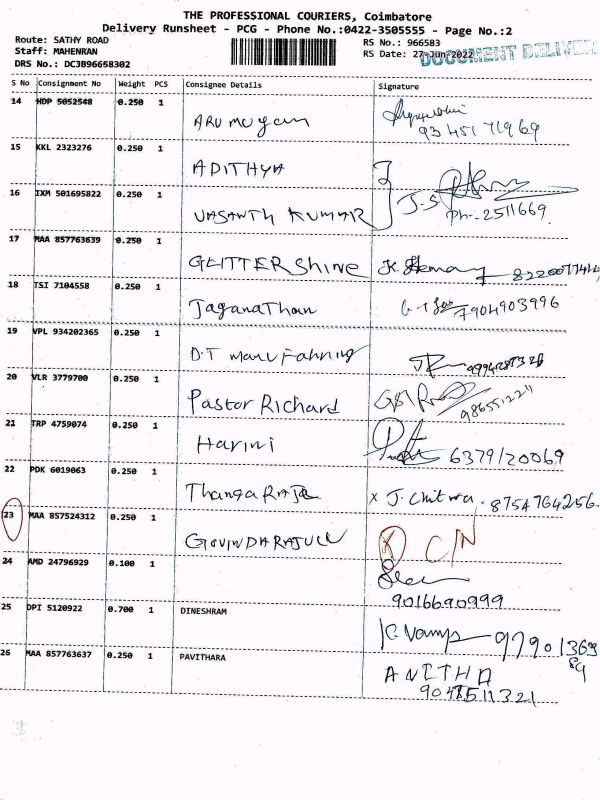 THE PROFESSIONAL COURIERS, Coimbatore
Delivery Runsheet - PCG - Phone No.:0422-3505555 - Page No.:2
Route: SATHY ROAD
Staff: MAHENRAN
DRS No.: DCJB96658302
RS No.: 966583
RS Date: 27-Jun-2022
DOCUMENT DELIVER
S No Consignment No Weight PCS Consignee Details Signature
14 HDP 5052548 0.250 1
Arumugam
9345171969
15 KKL 2323276 0.250 1
ADITHYA
16 IXM 501695822 0.250 1
VASANTH KUMAR J.S
Ph:-2511669
17 MAA 857763639 0.250 1
GLITTER Shine
18 TSI 7104558 0.250 1
Jaganathan 7904903996
19 VPL 934202365 0.250 1
D.T
20 VLR 3779700 0.250 1
Pastor Richard
21 TRP 4759074 0.250 1
Harini 6379120069
22 PDK 6019063 0.250 1
Thanga Raja x J. Chitra. 8754764256
23 MAA 857524312 0.250 1
GOVINDARAJULU C/N
24 AMD 24796929 0.100 1
9016690999
25 DPI 5120922 0.700 1 DINESHRAM
K. Vamp 97901369
89
26 MAA 857763637 0.250 1 PAVITHARA
ANITHA